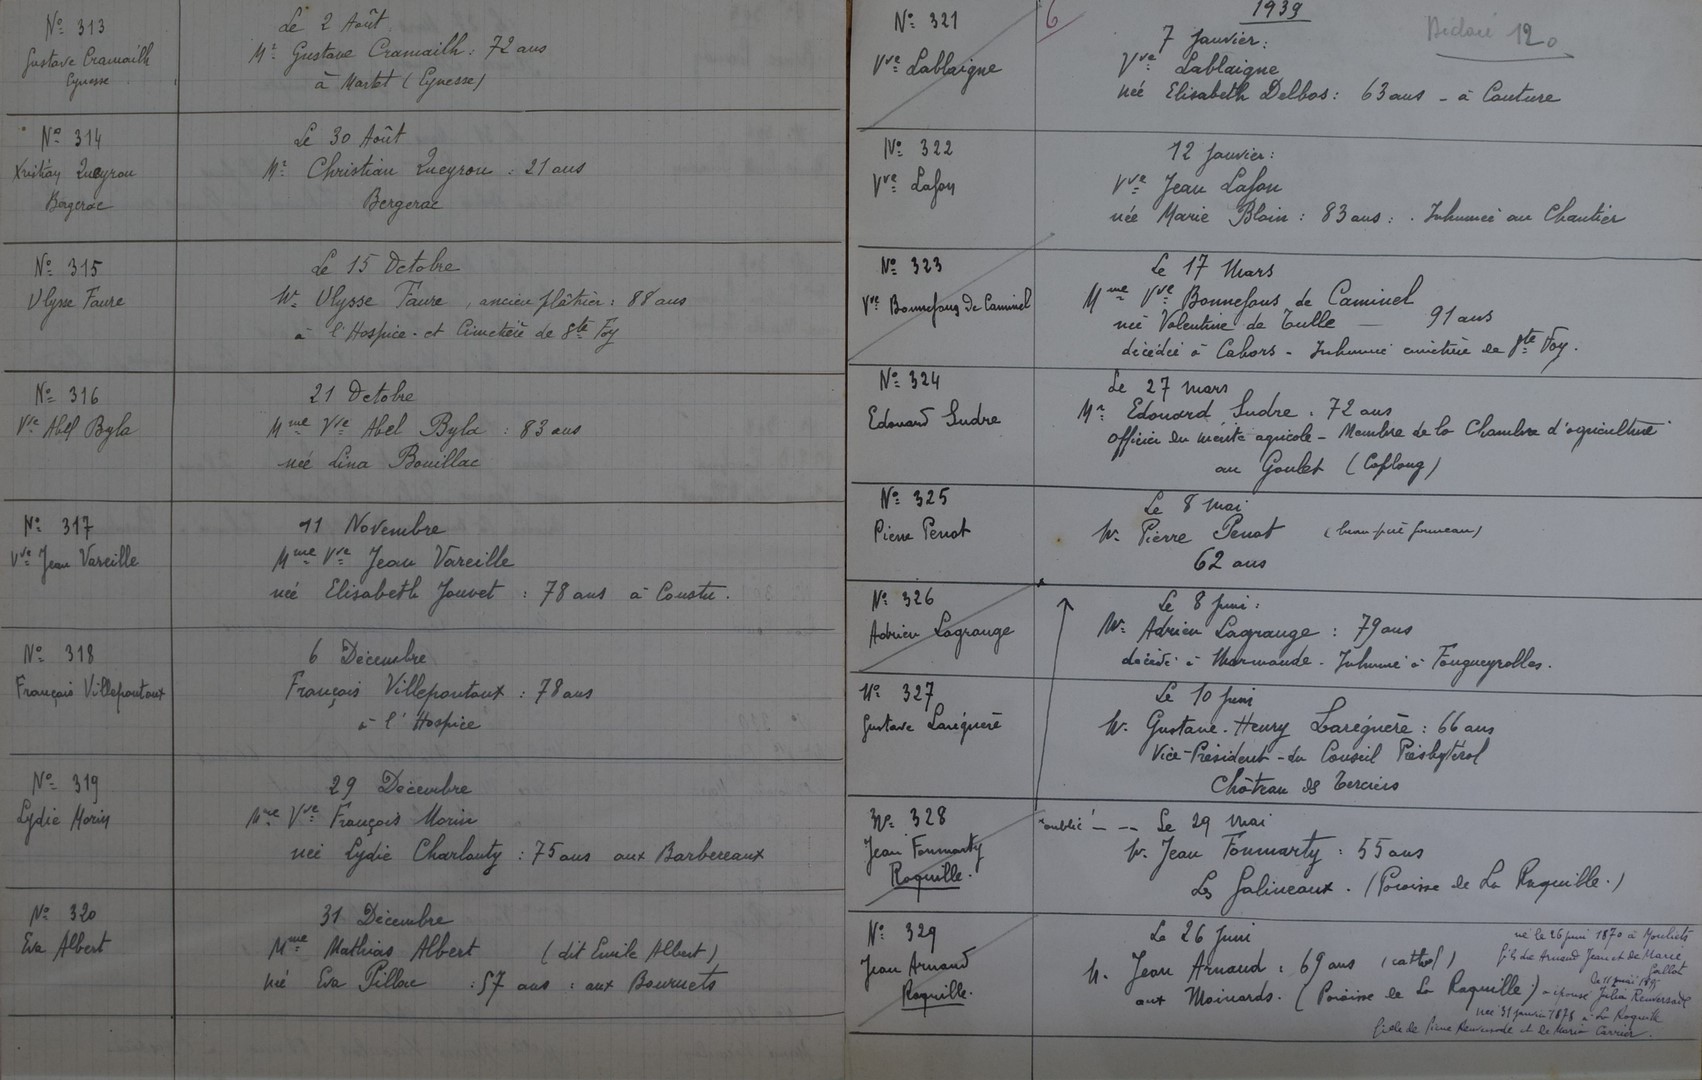 N° 313
Gustave Cramailh
Eynesse
Le 2 Août
Mr Gustave Cramailh : 72 ans
à Martet (Eynesse)
N° 314
Queyrou
Bergerac
Le 30 Août
Mr Christian Queyrou : 21 ans
Bergerac
N° 315
Ulysse Faure
Le 15 Octobre
Mr Ulysse Faure, ancien plâtrier : 88 ans
à l'Hospice - et Cimetière de Ste Foy
N° 316
Vve Abel Byla
21 Octobre
Mme Vve Abel Byla : 83 ans
née Lina Bouillac
N° 317
Vve Jean Vareille
11 Novembre
Mme Vve Jean Vareille
née Elisabeth Jouvet : 78 ans à Coustu.
N° 318
François Villepontoux
6 Décembre
François Villepontoux : 78 ans
à l'Hospice
N° 319
Lydie Morin
29 Décembre
Mme Vve François Morin
née Lydie Charlouty : 75 ans aux Barbereaux
N° 320
Eva Albert
31 Décembre
Mme Mathias Albert (dit Emile Albert)
née Eva Pillac : 57 ans : aux Bournets
1939
N° 321
Vve Lablaigne
6
7 Janvier :
12
Vve Lablaigne
née Elisabeth Delbos : 63 ans - à Couture
N° 322
Vve Lafon
12 Janvier :
Vve Jean Lafon
née Marie Bloin : 83 ans : . Inhumée au Chantier
N° 323
Vve Bonnefous de Caminel
Le 17 Mars
Mme Vve Bonnefous de Caminel
née Valentine de Tulle — 91 ans
décédée à Cahors - Inhumée cimetière de Ste Foy.
N° 324
Edouard Sudre
Le 27 mars
Mr Edouard Sudre . 72 ans
officier du mérite agricole - Membre de la Chambre d'agriculture
au Goulet (Caplong)
N° 325
Pierre Penot
Le 8 mai
Mr Pierre Penot (beau-père )
62 ans
N° 326
Adrien Lagrange
Le 8 Juin :
Mr Adrien Lagrange : 79 ans
décédé à Marmande - Inhumé à Fougueyrolles.
N° 327
Gustave Laregnère
Le 10 Juin
Mr Gustave-Henry Laregnère : 66 ans
Vice-Président - du Conseil Presbytéral
Château de Terciers
N° 328
Jean Fonmarty
Roquille.
"oublié" — -- Le 29 mai
Mr Jean Fonmarty : 55 ans
Les Galineaux . (Paroisse de La Roquille.)
N° 329
Jean Arnaud
Roquille.
Le 26 Juin
Mr Jean Arnaud : 69 ans (cathol)
aux Moinards. (Paroisse de La Roquille.)
né le 26 juin 1870 à
fils de Arnaud Jean et de Marie
Gallot
a épousé Julia Renversade
née 31 janvier 1878 à La Roquille
fille de Pierre Renversade et de Marie Carrier.